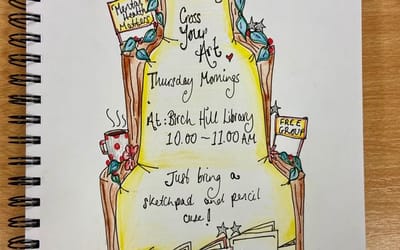 Mental
Health
Matters
Cross
Your
Art
Thursday Mornings
At: Birch Hill Library
10.00 ~ 11.00 AM
FREE
GROUP
Just bring a
sketchpad and pencil
case!